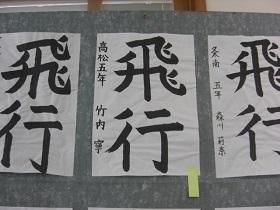 飛行
飛行
高松五年 竹内 寧
飛行
五年 森川